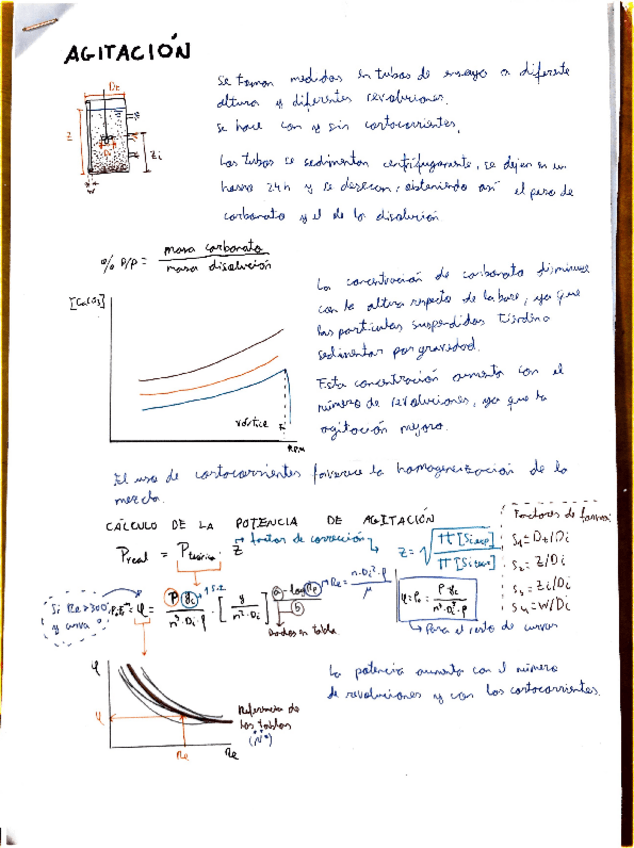 AGITACIÓN
Dt
Z
Di
Zi
W
Se toman medidas en tubos de ensayo a diferente
altura y diferentes revoluciones.
Se hace con y sin cortocorrientes.
Los tubos se sedimentan centrifugamente, se dejan en un
horno 24h y se desecan, obteniendo así el peso de
carbonato y el de la disolución
% P/P = masa carbonato / masa disolución
[CaCO3]
vórtice
R.P.M
La concentración de carbonato disminuye
con la altura respecto de la base, ya que
las partículas suspendidas tienden a
sedimentar por gravedad.
Esta concentración aumenta con el
número de revoluciones, ya que la
agitación mejora.
El uso de cortocorrientes favorece la homogenización de la
mezcla.
CÁLCULO DE LA POTENCIA DE AGITACIÓN
Preal = Pteórica · Z → factor de corrección → Z = √ π [Si exp] / π [Si teor]
Factores de forma:
S1 = Dt/Di
S2 = Z/Di
S3 = Zi/Di
S4 = W/Di
Si Re > 300
y curva
φ = P gc / n³ · Di · ρ · [ g / n² · Di ] a - log Re / b
Re = n · Di² · ρ / μ
Dados en tabla
φ = Po = P gc / n³ · Di⁵ · ρ
→ Para el resto de curvas
φ
φ
Re
Re
Referencia de
las tablas
(Nº)
La potencia aumenta con el número
de revoluciones y con las cortocorrientes.